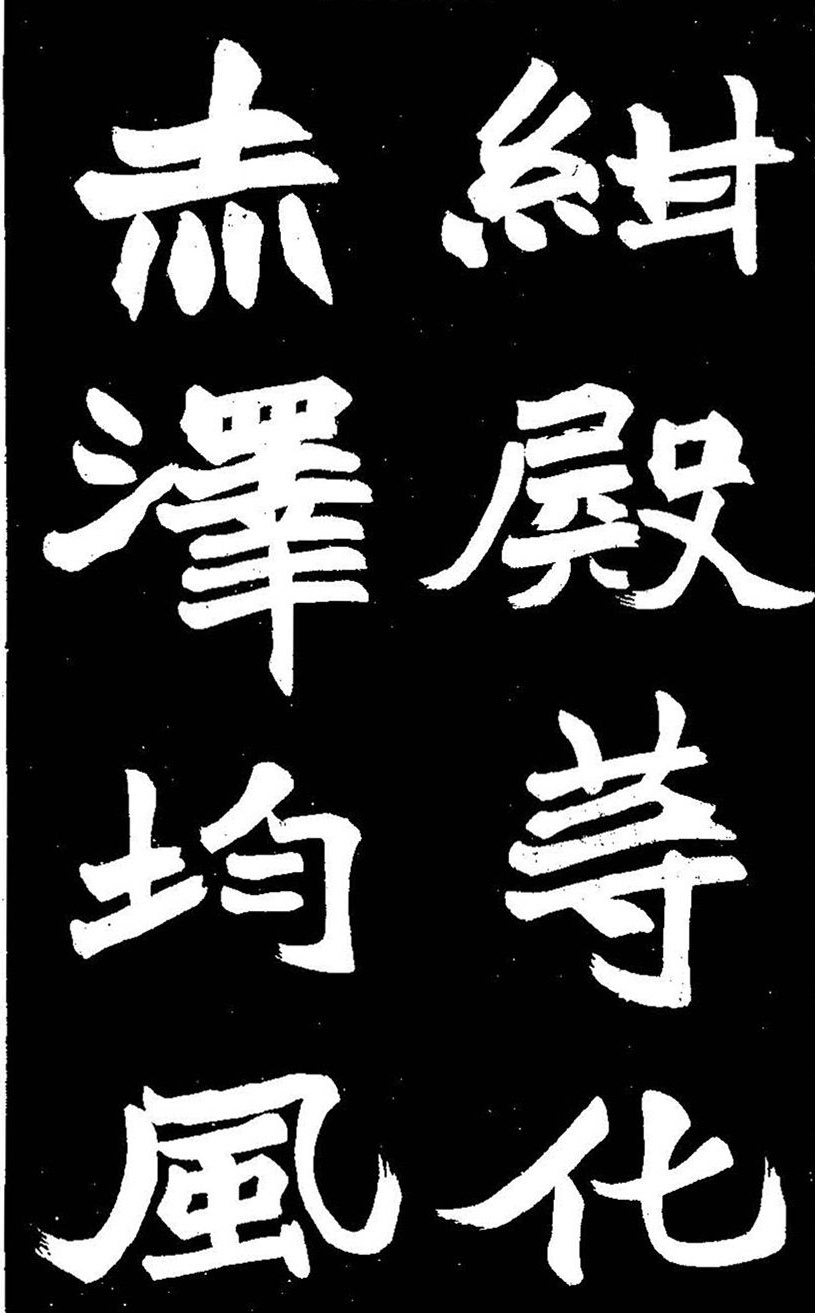 紺殿䓁化
赤澤均風